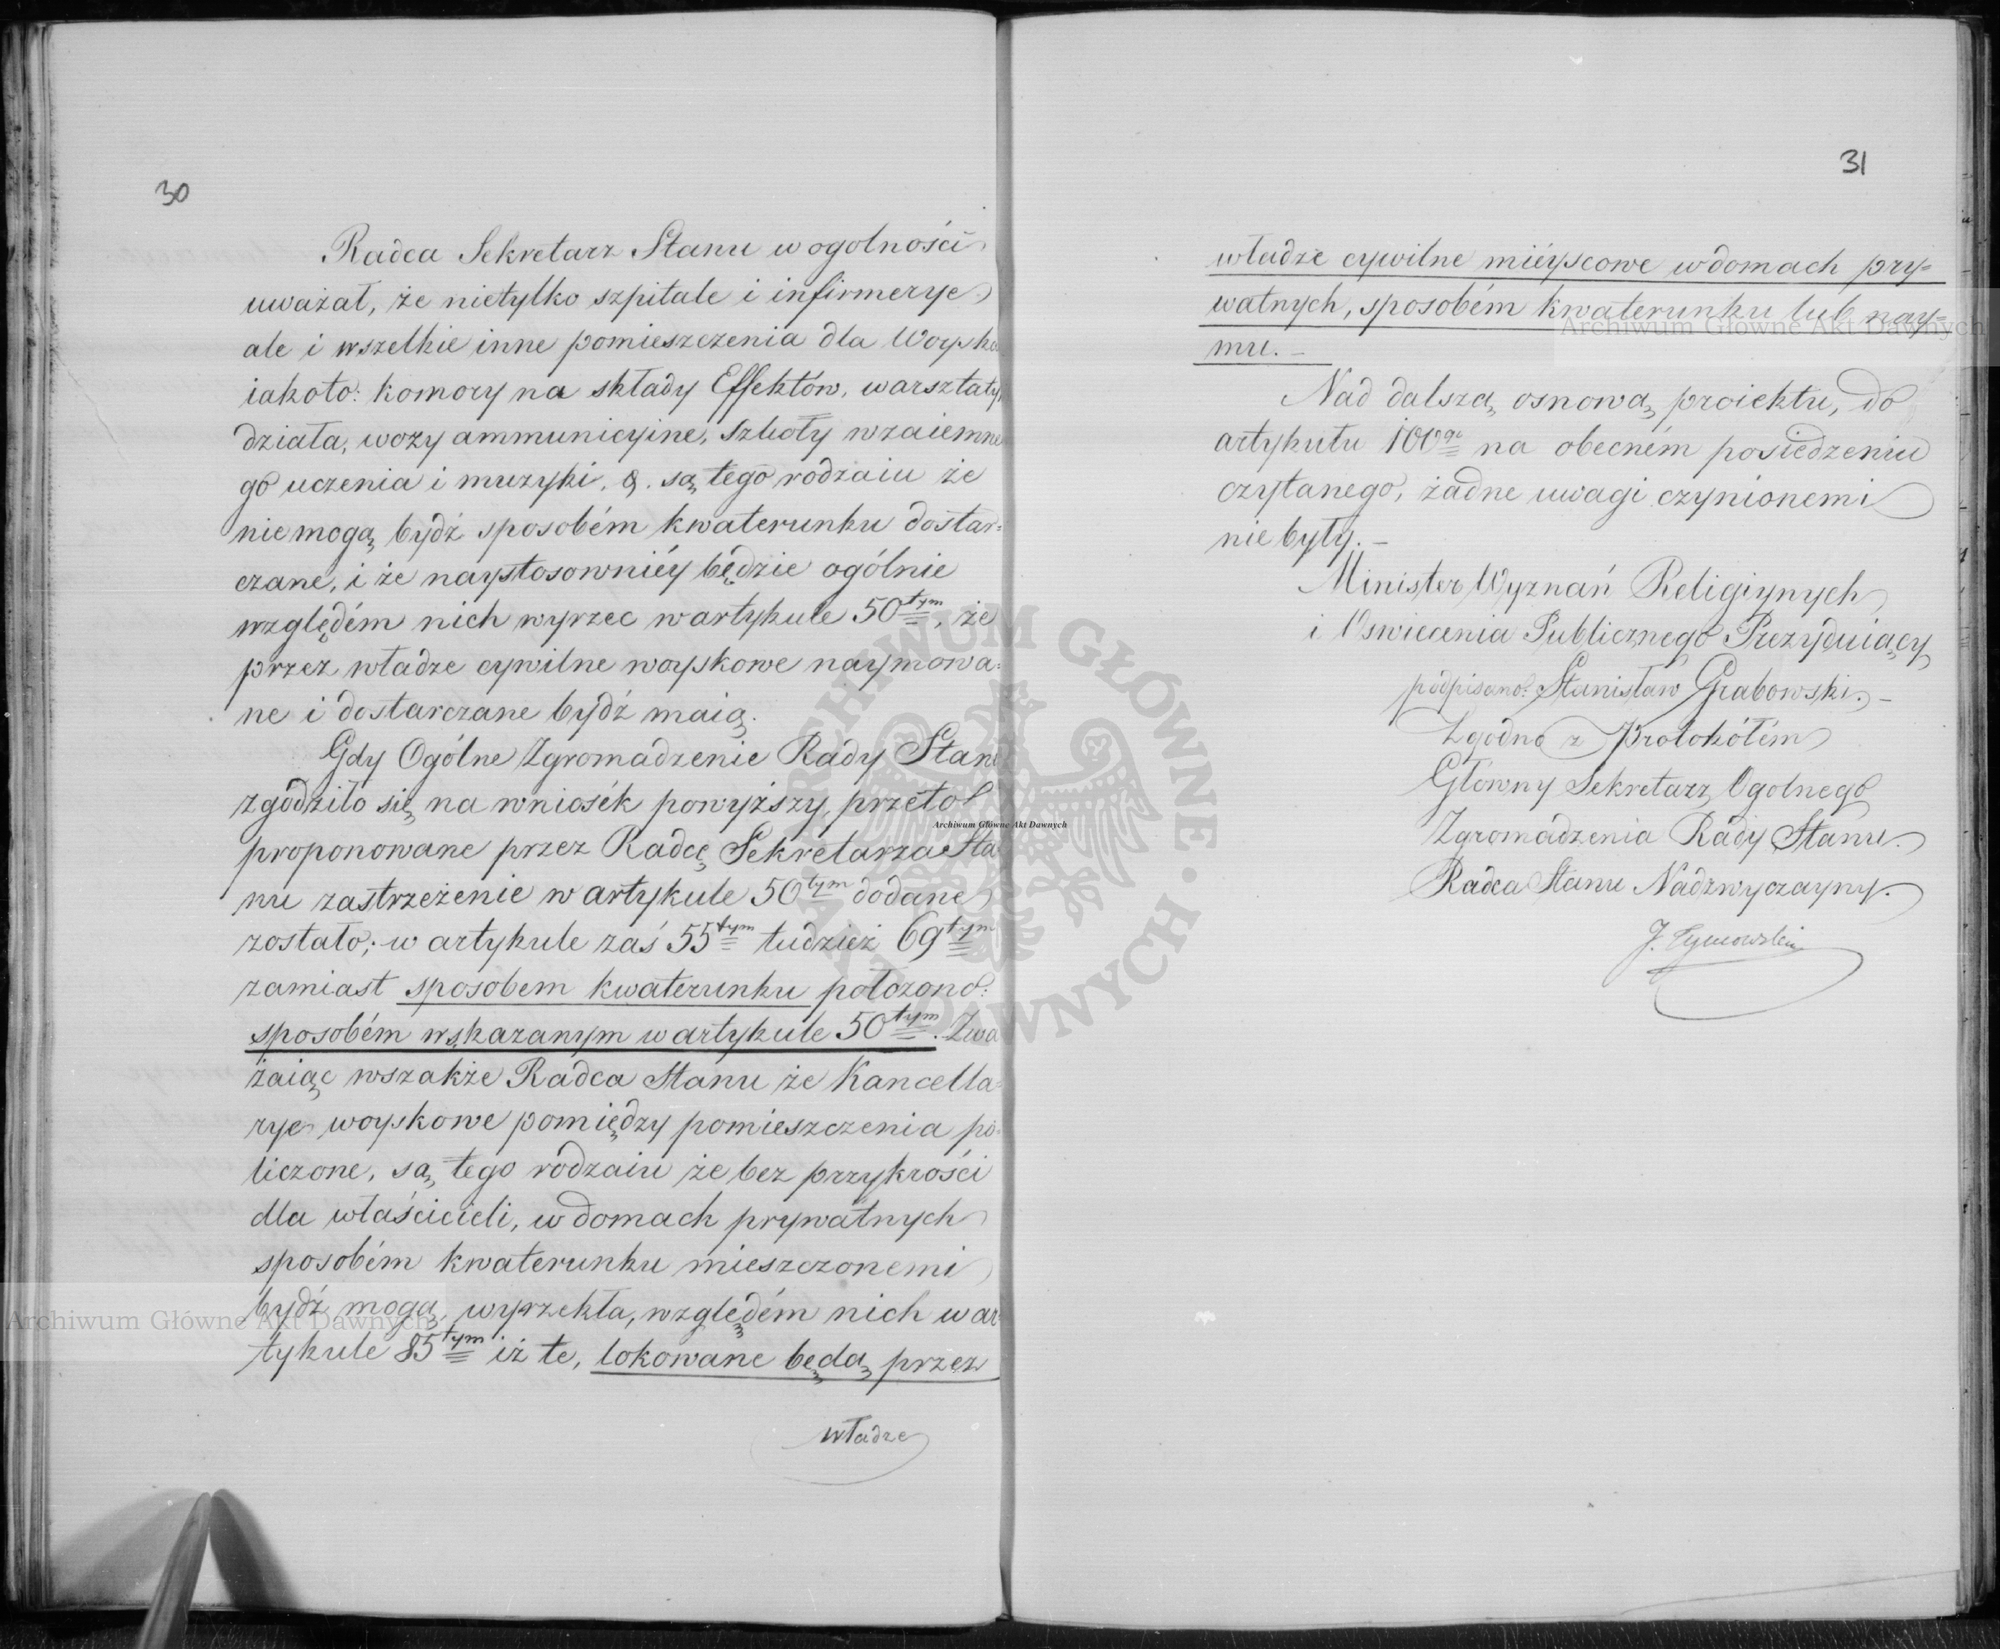 30
Radca Sekretarz Stanu w ogolności
uważał, że nietylko szpitale i infirmerye
ale i wszelkie inne pomieszczenia dla Woyska
iakoto: komory na składy Effektów, warsztaty,
działa, wozy ammunicyine, szkoły wzaiemne
go uczenia i muzyki, &. są tego rodzaiu że
nie mogą bydź sposobém kwaterunku dostar=
czane, i że naystosowniéy będzie ogólnie
względém nich wyrzec w artykule 50tym, że
przez władze cywilne woyskowe naymowa=
ne i dostarczane bydź maią.
Gdy Ogólne Zgromadzenie Rady Stanu
zgodziło się na wniosék powyższy, przeto
proponowane przez Radcę Sekretarza Sta
nu zastrzeżenie w artykule 50tym dodane
zostało; w artykule zaś 55tym tudzież 69tym
zamiast sposobem kwaterunku położono:
sposobém wskazanym w artykule 50tym. Zwa
żaiąc wszakże Radca Stanu że Kancella=
rye woyskowe pomiędzy pomieszczenia po=
liczone, są tego rodzaiu że bez przykrości
dla właścicieli, w domach prywatnych
sposobém kwaterunku mieszczonemi
bydź mogą, wyrzekła, względém nich w ar
tykule 85tym iż te, lokowane będą przez
władze
31
władze cywilne miéyscowe w domach pry=
watnych, sposobém kwaterunku lub nay=
mu. –
Nad dalszą osnową proiektu, do
artykułu 100go na obecném posiedzeniu
czytanego, żadne uwagi czynionemi
nie były. –
Minister Wyznań Religiynych
i Oswiecenia Publicznego Prezyduiący
podpisano: Stanisław Grabowski. –
Zgodno z Protokółém
Główny Sekretarz Ogolnego
Zgromadzenia Rady Stanu.
Radca Stanu Nadzwyczayny.
J. Tymowski
Archiwum Główne Akt Dawnych
Archiwum Główne Akt Dawnych
Archiwum Główne Akt Dawnych
ARCHIWUM GŁÓWNE · AKT DAWNYCH ·